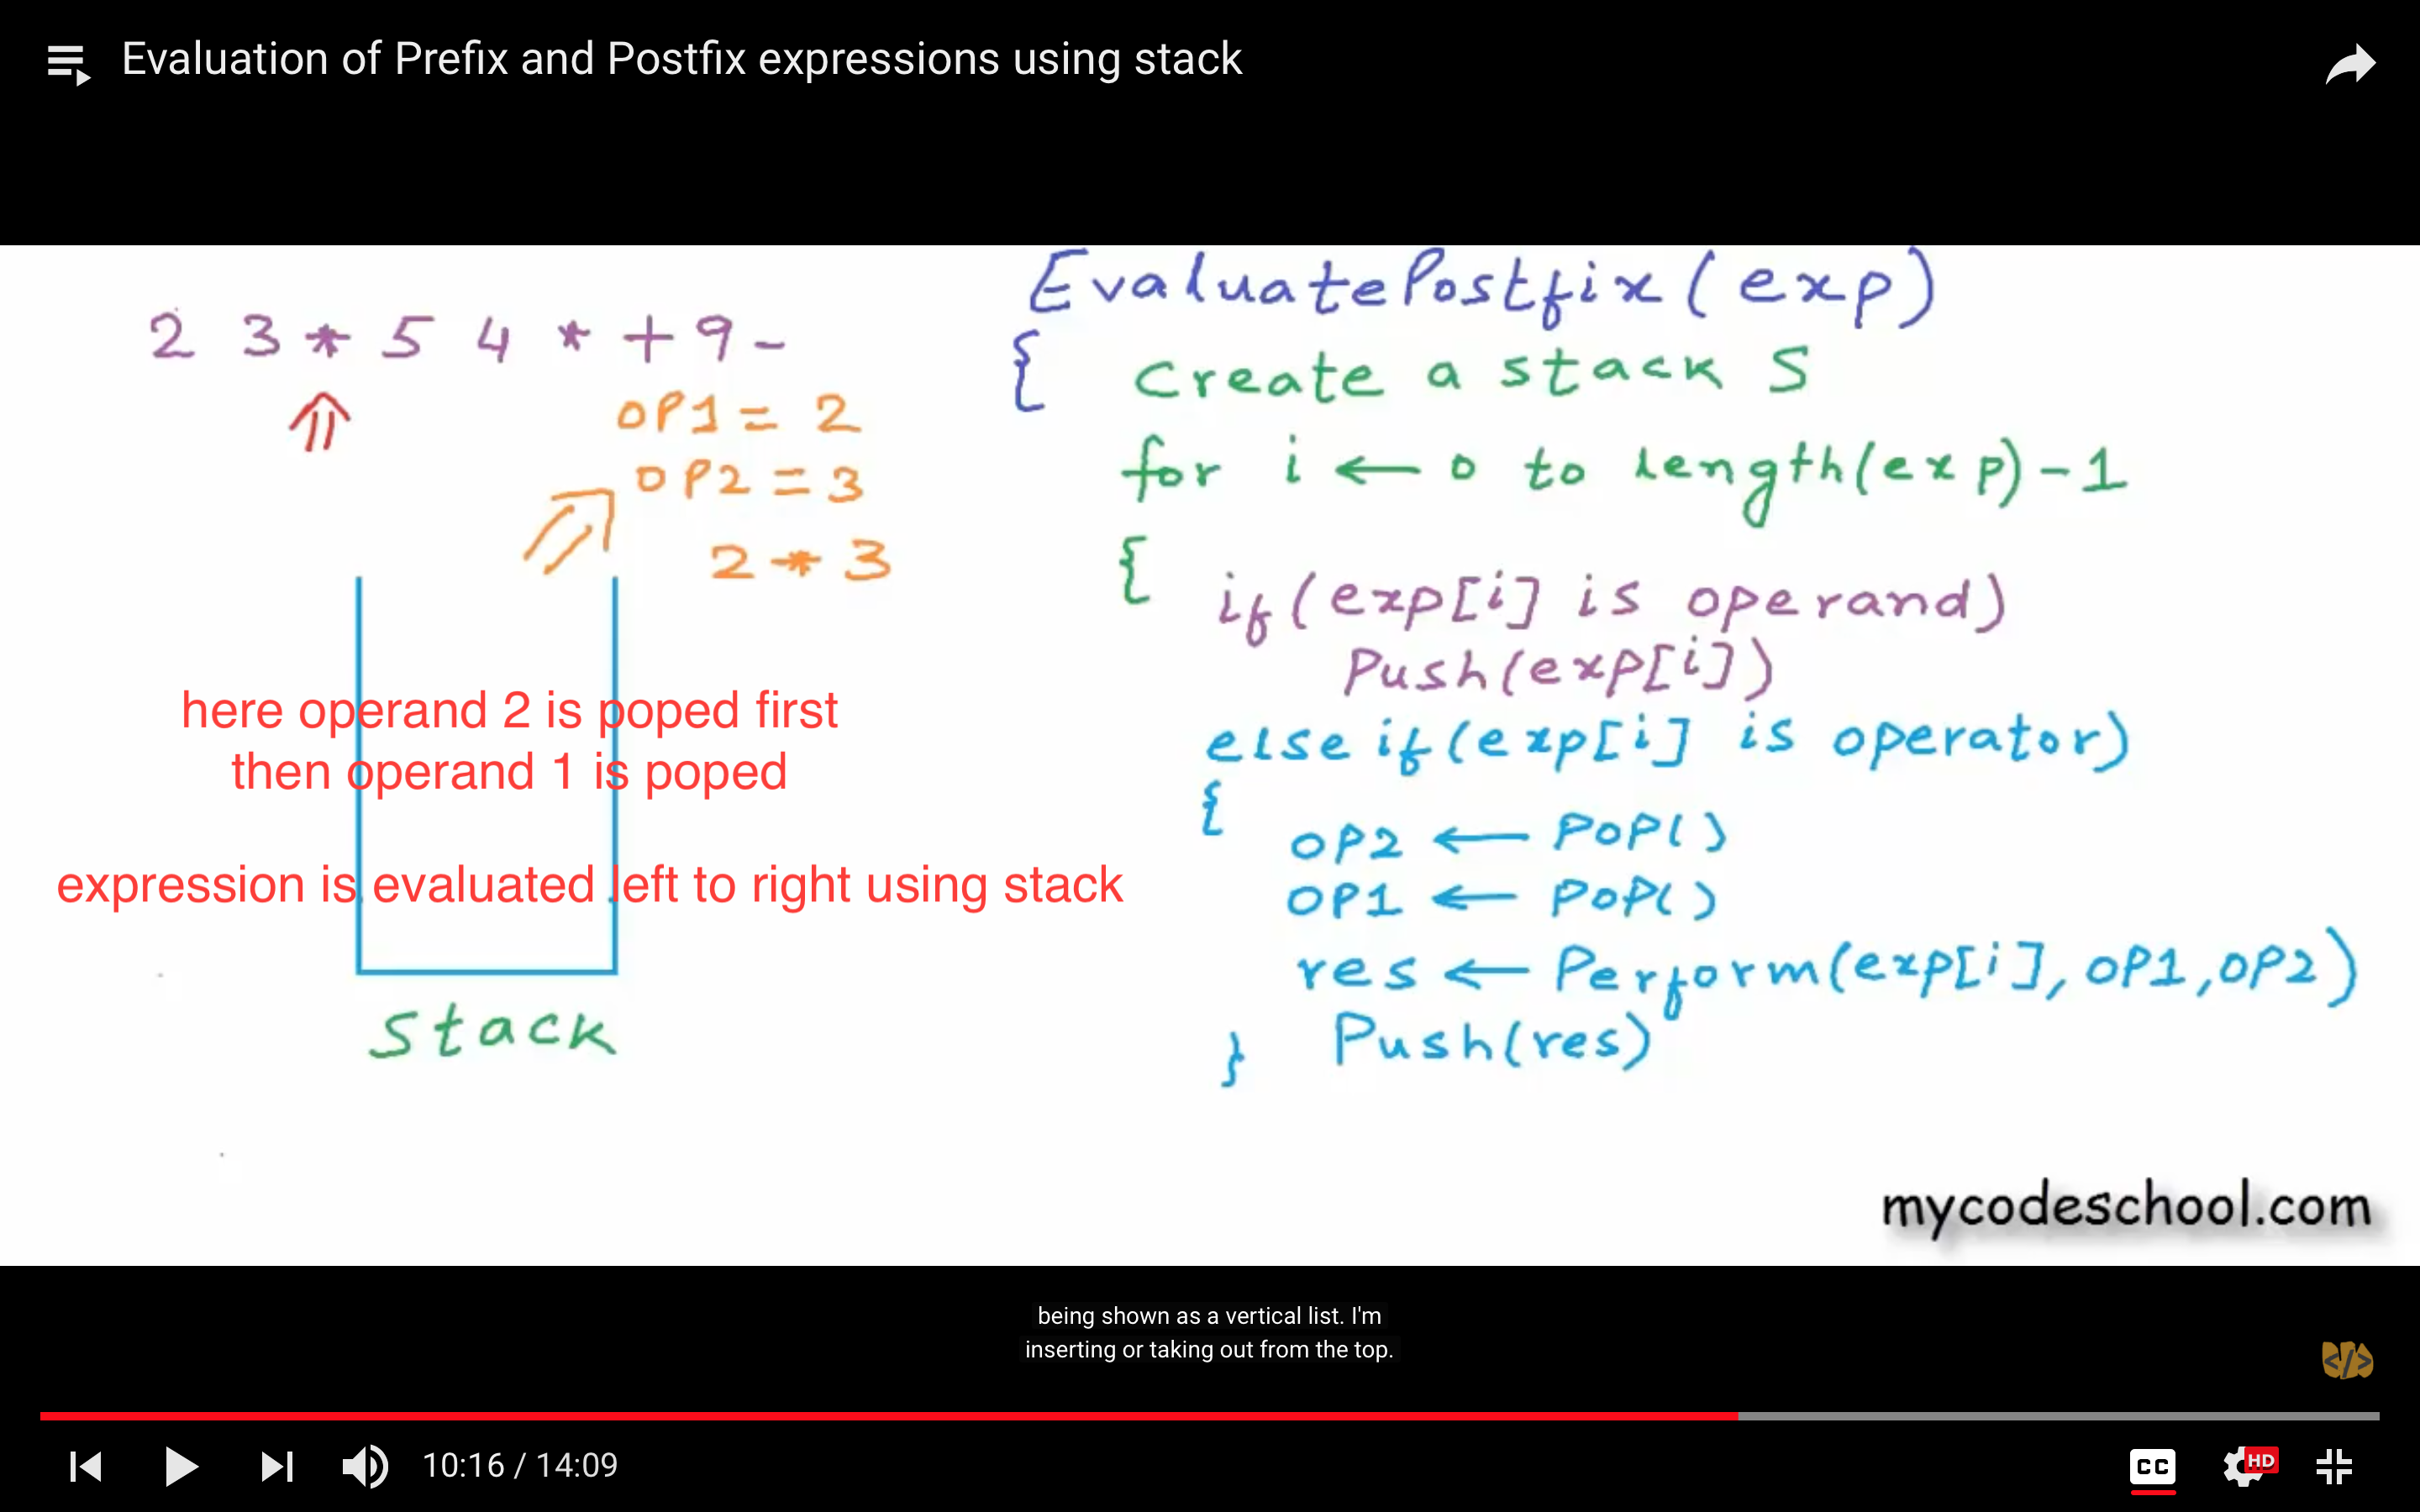 Evaluation of Prefix and Postfix expressions using stack
2 3 * 5 4 * + 9 -
OP1 = 2
OP2 = 3
2 * 3
here operand 2 is poped first
then operand 1 is poped
expression is evaluated left to right using stack
Stack
EvaluatePostfix(exp)
{ Create a stack S
for i ← 0 to length(exp)-1
{ if(exp[i] is operand)
Push(exp[i])
else if(exp[i] is operator)
{ OP2 ← POP()
OP1 ← POP()
res ← Perform(exp[i], OP1, OP2)
} Push(res)
mycodeschool.com
being shown as a vertical list. I'm
inserting or taking out from the top.
</>
10:16 / 14:09
CC
HD